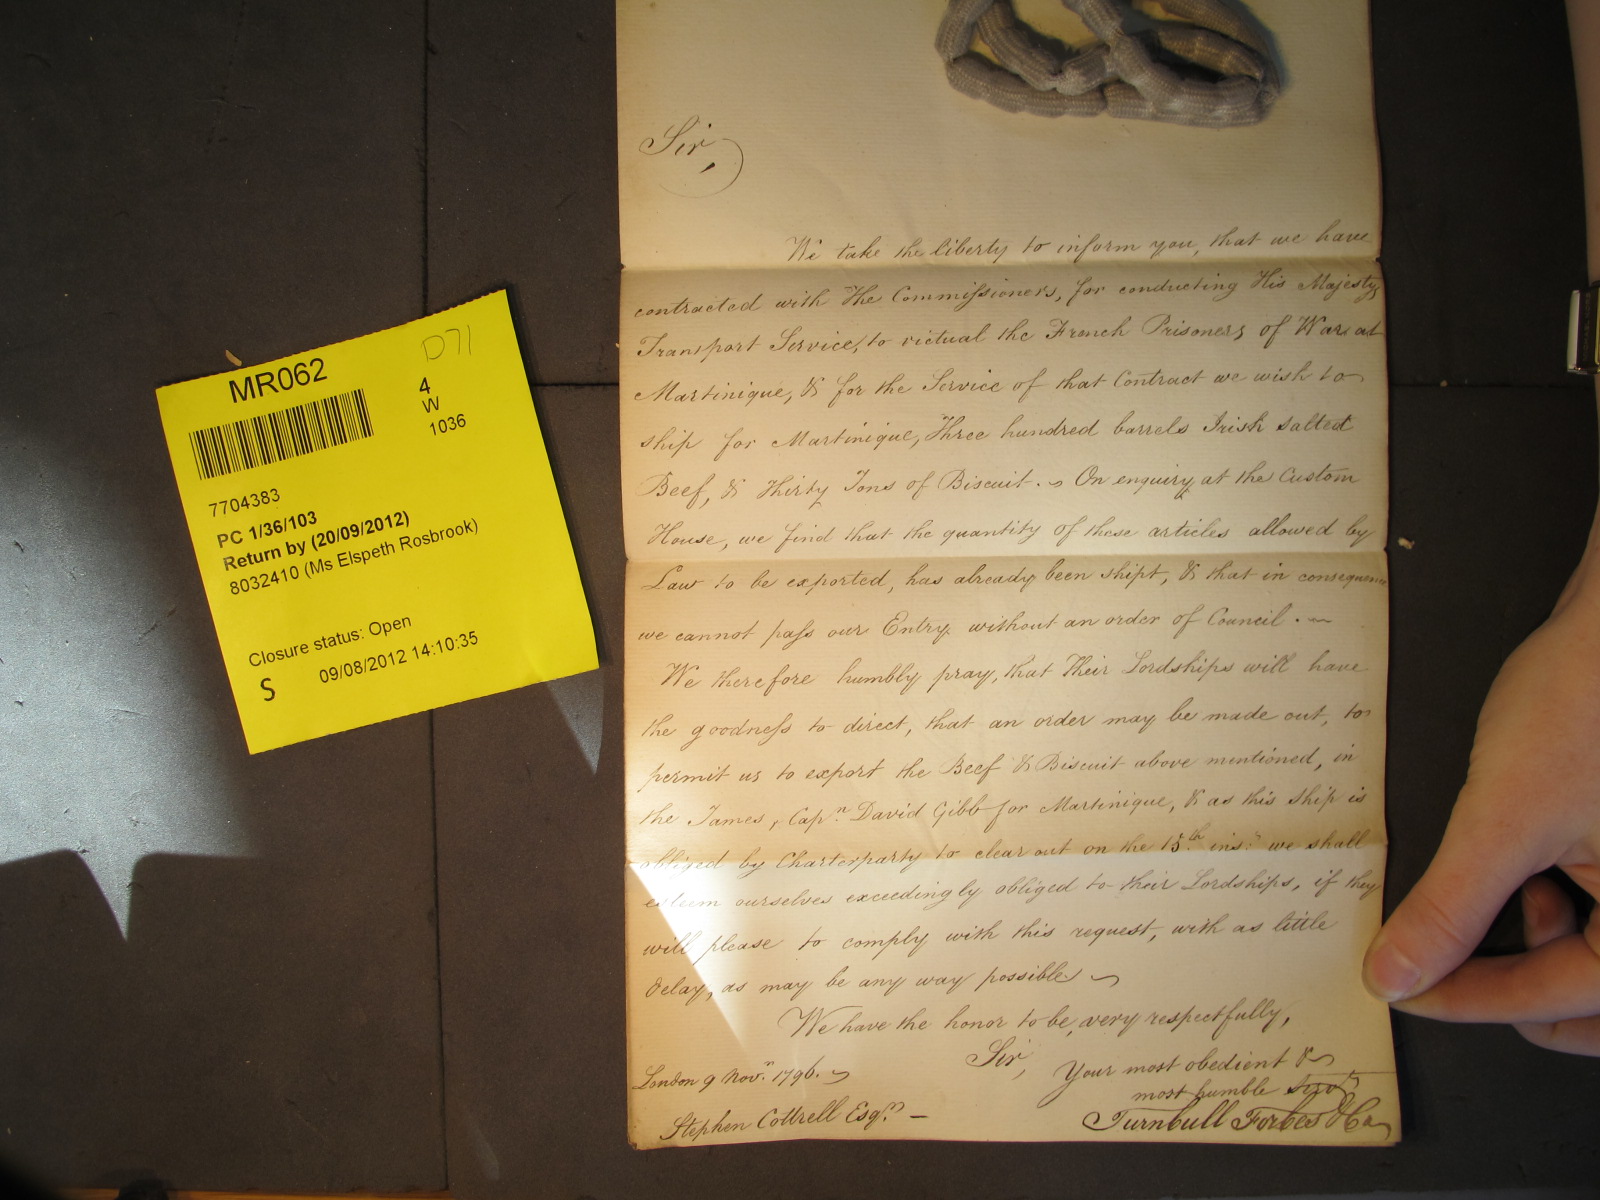 MR062
D71
4
W
1036
7704383
PC 1/36/103
Return by (20/09/2012)
8032410 (Ms Elspeth Rosbrook)
Closure status: Open
S
09/08/2012 14:10:35
Sir,
We take the liberty to inform you, that we have
contracted with The Commissioners, for conducting His Majestys
Transport Service, to victual the French Prisoners of War at
Martinique, & for the Service of that Contract we wish to
ship for Martinique, Three hundred barrels Irish salted
Beef, & Thirty Tons of Biscuit. On enquiry at the Custom
House, we find that the quantity of these articles allowed by
Law to be exported, has already been shipt, & that in consequence
we cannot pass our Entry without an order of Council. —
We therefore humbly pray, that Their Lordships will have
the goodness to direct, that an order may be made out, to
permit us to export the Beef & Biscuit above mentioned, in
the James, Capn. David Gibb for Martinique, & as this Ship is
obliged by Charterparty to clear out on the 15th. inst. we shall
esteem ourselves exceedingly obliged to their Lordships, if they
will please to comply with this request, with as little
delay, as may be any way possible
We have the honor to be, very respectfully,
Sir,
Your most obedient &
most humble Servts
Turnbull Forbes & Co
London 9 Novr. 1796.
Stephen Cottrell Esqr. —